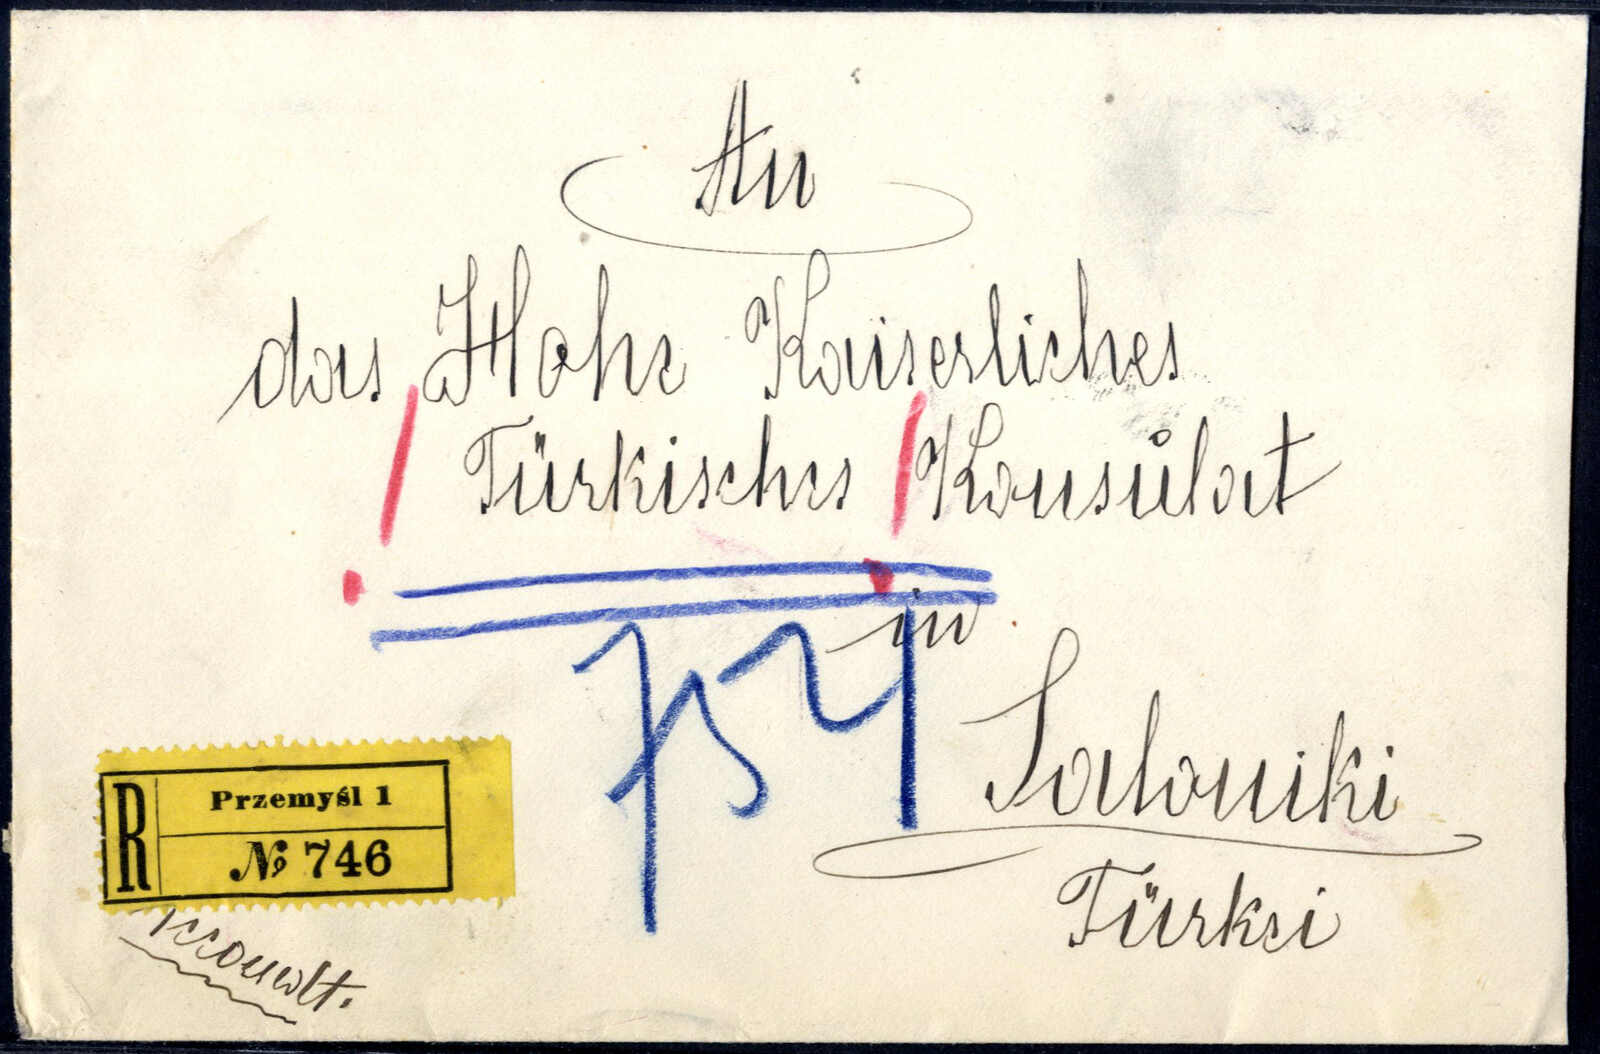 An
das Hohe Kaiserliches
Türkisches Konsulat
in
Saloniki
Türkei
R
Przemyśl 1
№ 746